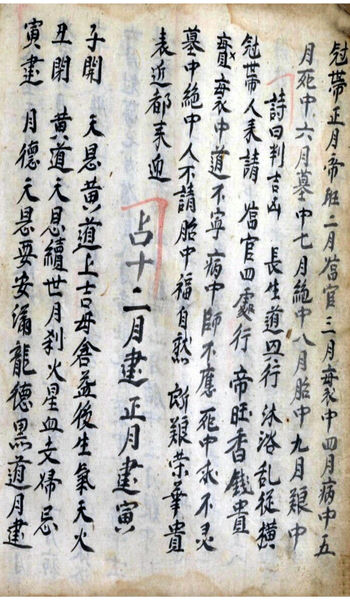 冠帶正月帝旺二月當官三月衰中四月病中五
月死中六月墓中七月絶中八月胎中九月䘆中
詩曰判吉凶 長生道興行 沐浴乱從橫
冠帶人来請 當官四處行 帝旺香錢貴
衰中道不寧 病中師不應 死中求不灵
墓中絶中人不請 胎中福自然 䘆榮華貴
表近都来迎
占十二月建 正月建寅
子開 天恩黄道上吉母倉益後生氣天火
丑閉 黄道天恩續世月刹火星血支婦忌
寅建 月德天恩要安滿龍德黑道月建